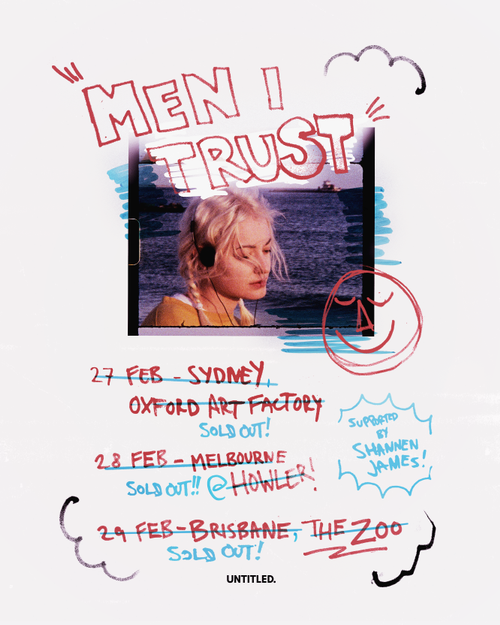 MEN I
TRUST
27 FEB - SYDNEY,
OXFORD ART FACTORY
SOLD OUT!
SUPPORTED
BY
SHANNEN
JAMES!
28 FEB - MELBOURNE
SOLD OUT!! @HOWLER!
29 FEB - BRISBANE, THE ZOO
SOLD OUT!
UNTITLED.